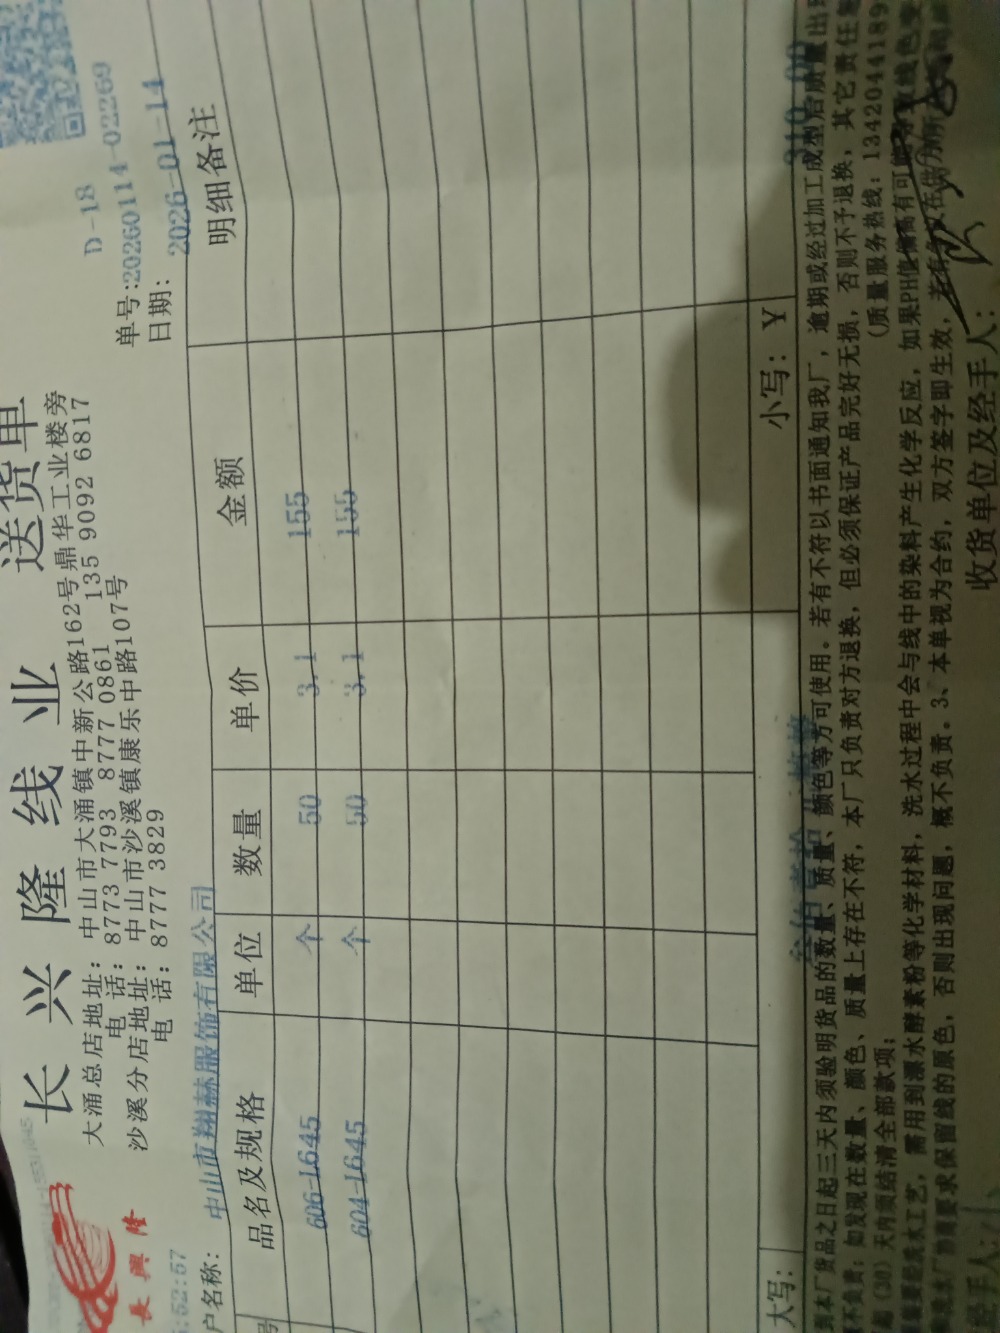 长兴隆线业 送货单
長興隆
大涌总店地址：中山市大涌镇中新公路162号鼎华工业楼旁
电 话：8773 7793 8777 0861 135 9092 6817
沙溪分店地址：中山市沙溪镇康乐中路107号
电 话：8777 3829
D-18
单号:20260114-02269
日期： 2026-01-14
:52:57
户名称： 中山市翔赫服饰有限公司
号 品名及规格 单位 数量 单价 金额 明细备注
606-1645 个 50 3.1 155
604-1645 个 50 3.1 155
大写： 小写：￥ 310.00
到本厂货品之日起三天内须验明货品的数量、质量、颜色等方可使用。若有不符以书面通知我厂，逾期或经过加工成型后质量出
不负责；如发现在数量、颜色、质量上存在不符，本厂只负责对方退换，但必须保证产品完好无损，否则不予退换，其它责任
起(30)天内须结清全部款项； (质量服务热线：1342044189
需要经洗水工艺，需用到漂水酵素粉等化学材料，洗水过程中会与线中的染料产生化学反应，如果PH值偏高有可能 线色变
要求保留线的原色，否则出现问题，概不负责。3、本单视为合约，双方签字即生效，若有
经手人： 收货单位及经手人：